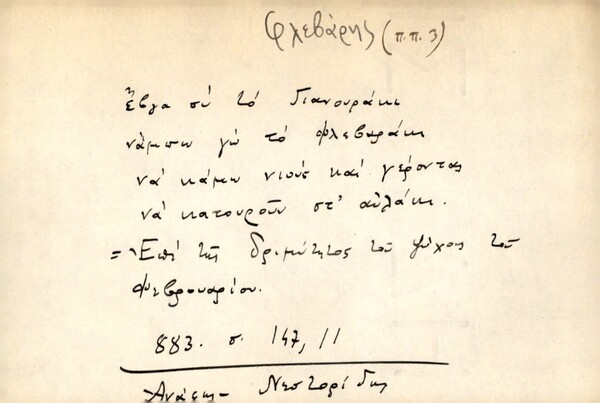 Φλεβάρης (π.π. 3)
Ἔβγα σύ τό Γιανουράκι
νἄμπω γώ τό φλεβαράκι
νά κάμω νιούς καί γέροντας
νά κατουροῦν στ' αὐλάκι.
= Ἐπί τῆς δριμύτητος τοῦ ψύχους τοῦ
Φεβρουαρίου.
883. σ. 147, 11
Νεστορίδης